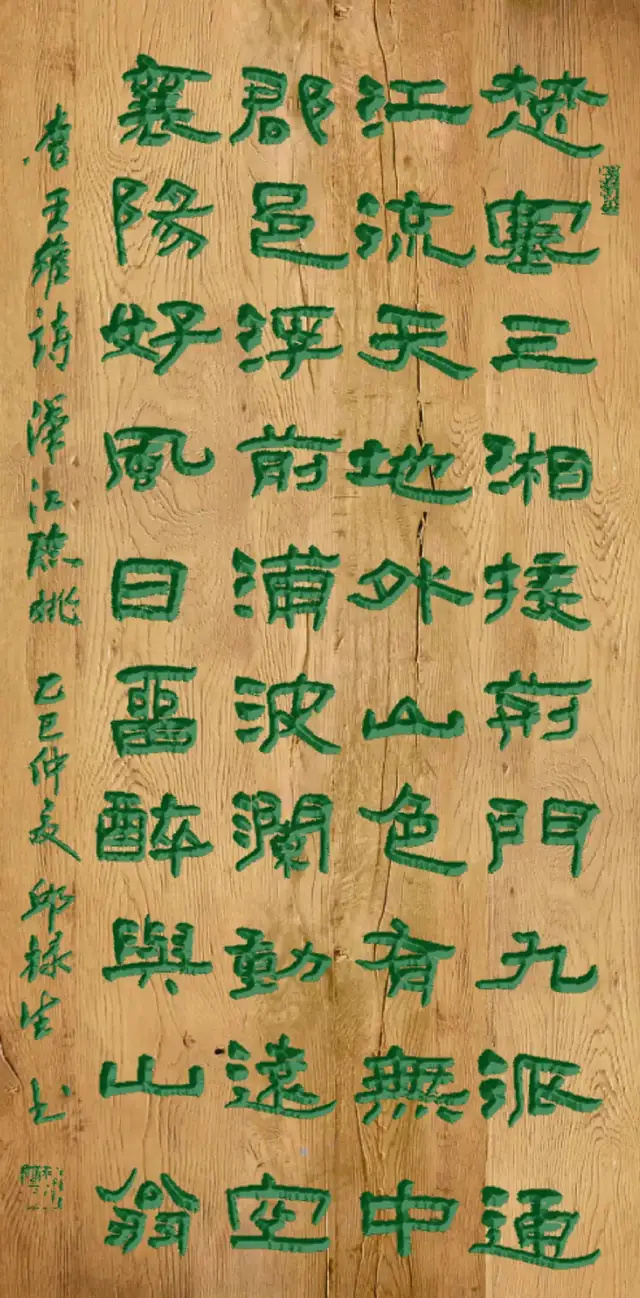 楚塞三湘接荆門九派通
江流天地外山色有無中
郡邑浮前浦波瀾動遠空
襄陽好風日畱醉與山翁
唐王維詩漢江臨眺 乙巳仲夏 邱禄生书